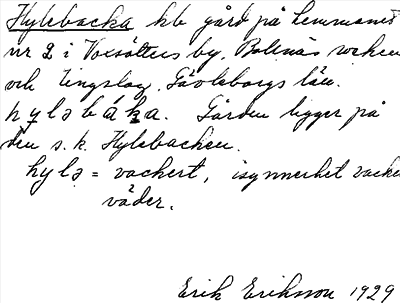 Hylebacka kb gård på hemmanet
nr 2 i Voxsätters by, Bollnäs socken
och tingslag, Gävleborgs län.
hyləbáka. Gården ligger på
den s.k. Hylebacken.
hylə = vackert, isynnerhet vacke
väder.
Erik Eriksson 1929